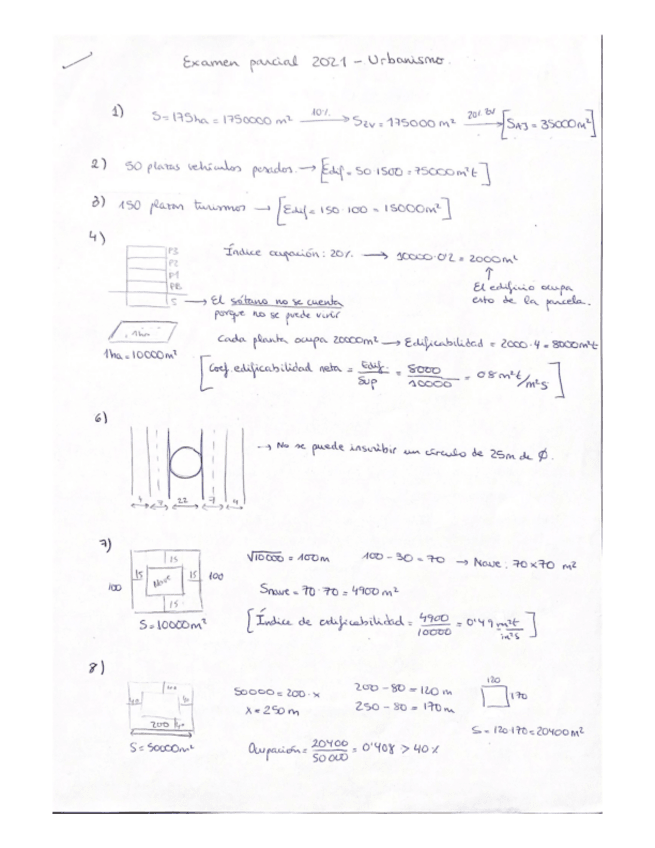 Examen parcial 2021 - Urbanismo.
1) S = 175ha = 1750000 m² 10% → S_ZV = 175000 m² 20% ZV → [S_AJ = 35000 m²]
2) 50 plazas vehículos pesados. → [Edif = 50·1500 = 75000 m²t]
3) 150 plazas turismos → [Edif = 150·100 = 15000 m²]
4)
P3
P2
P1
PB
S
Índice ocupación: 20% → 10000·0'2 = 2000 m²
↑
El edificio ocupa
esto de la parcela.
→ El sótano no se cuenta
porque no se puede vivir
1ha
1ha = 10000 m²
Cada planta ocupa 20000 m² → Edificabilidad = 2000·4 = 8000 m²t
[Coef. edificabilidad neta = Edif./Sup = 8000/10000 = 0'8 m²t/m²s]
6)
→ No se puede inscribir un círculo de 25m de Ø.
4 7 22 7 4
7)
15
100 15 Nave 15 100
15
S = 10000 m²
√10000 = 100m 100 - 30 = 70 → Nave: 70x70 m²
Snave = 70·70 = 4900 m²
[Índice de edificabilidad = 4900/10000 = 0'49 m²t/m²s]
8)
40
200
S = 50000 m²
50000 = 200·x 200 - 80 = 120 m
x = 250 m 250 - 80 = 170 m
120
170
S = 120·170 = 20400 m²
Ocupación = 20400/50000 = 0'408 > 40%